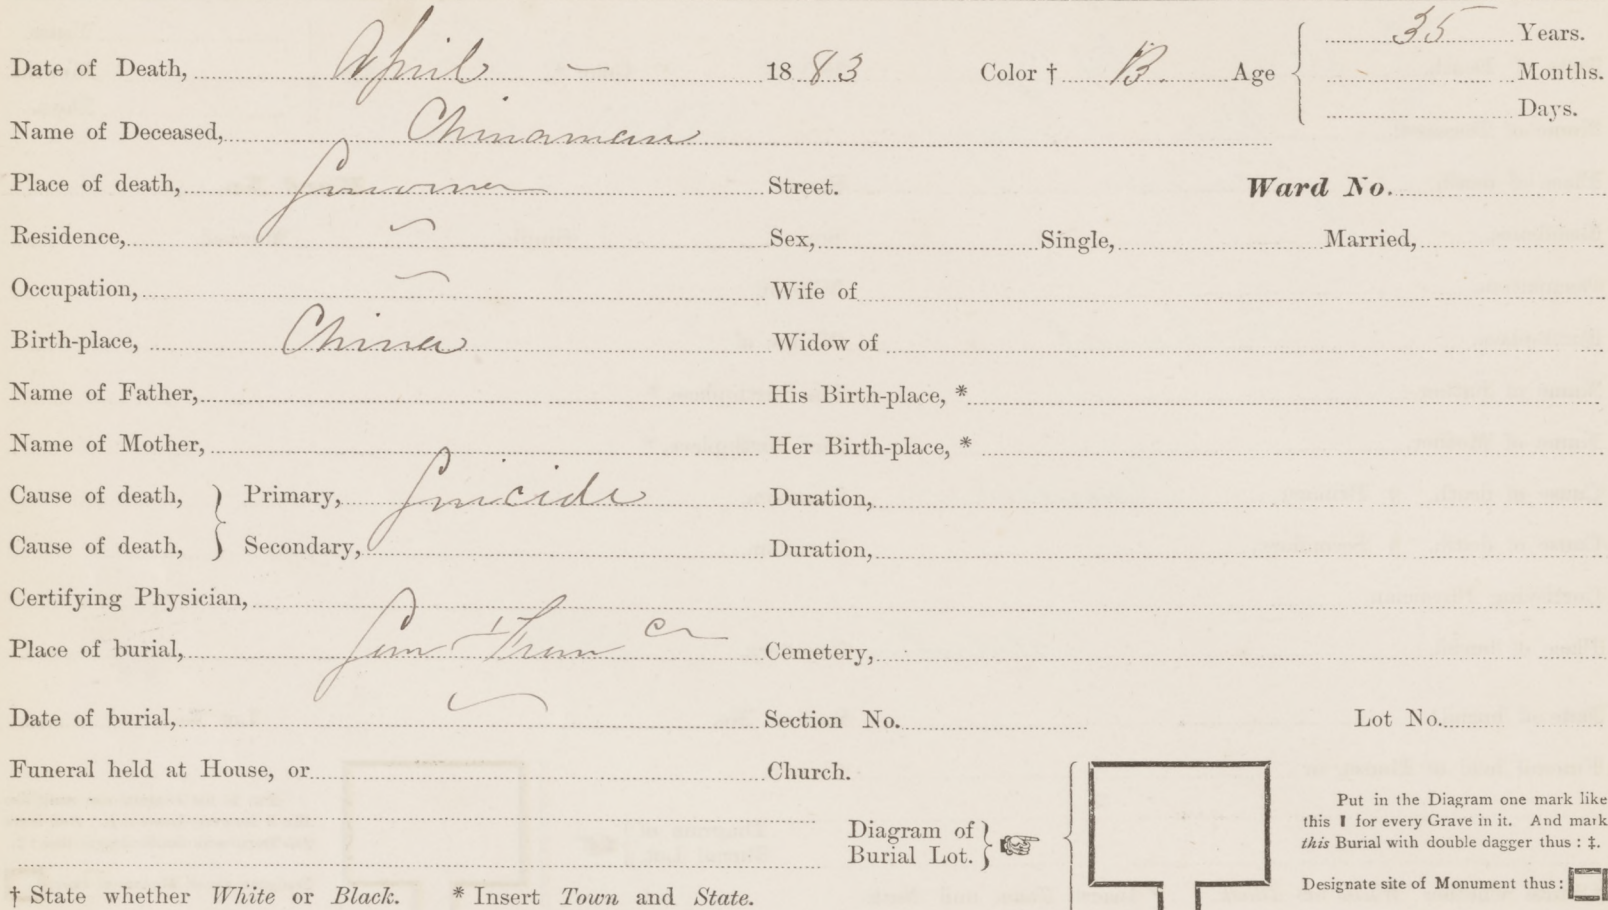 35 Years.
Date of Death, April — 1883 Color † B. Age Months.
Days.
Name of Deceased, Chinaman
Place of death, Sonoma Street. Ward No.
Residence, Sex, Single, Married,
Occupation, Wife of
Birth-place, China Widow of
Name of Father, His Birth-place, *
Name of Mother, Her Birth-place, *
Cause of death, } Primary, Suicide Duration,
Cause of death, } Secondary, Duration,
Certifying Physician,
Place of burial, Cemetery,
Date of burial, Section No. Lot No.
Funeral held at House, or Church.
Diagram of
Burial Lot.
Put in the Diagram one mark like
this I for every Grave in it. And mark
this Burial with double dagger thus : ‡.
Designate site of Monument thus:
† State whether White or Black. * Insert Town and State.